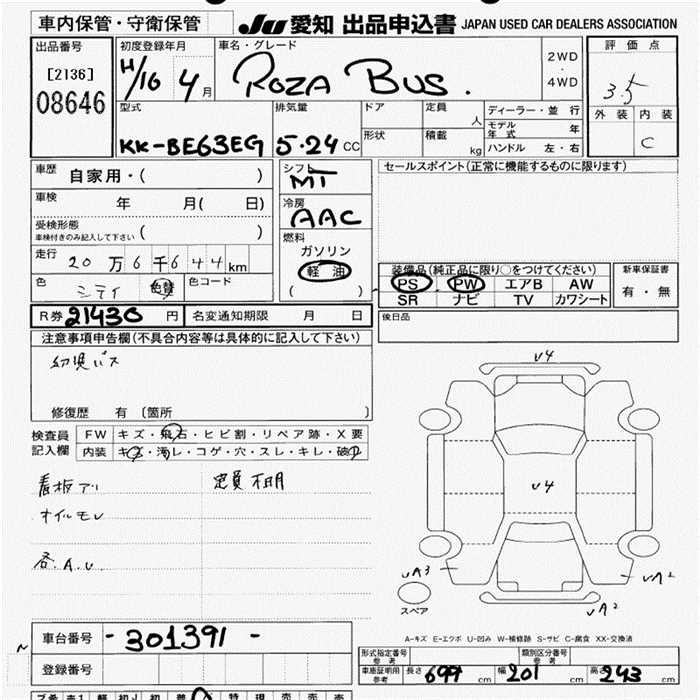 車内保管・守衛保管
JU 愛知 出品申込書 JAPAN USED CAR DEALERS ASSOCIATION
出品番号
[2136]
08646
初度登録年月
H/16 4月
車名・グレード
ROZA BUS.
2WD
・
4WD
評価点
3.5
外装 内装
C
型式
KK-BE63EG
排気量
5.24 CC
ドア
形状
定員 人
積載 kg
ディーラー・並行
モデル年式 年
ハンドル 左・右
車歴 自家用・( )
車検 年 月( 日)
受検形態
車検付きのみ記入して下さい ( )
走行 20万6千644km
色 シロイ 色替 色コード
シフト
MT
冷房
AAC
燃料
ガソリン
軽油
( )
セールスポイント(正常に機能するものに限ります)
装備品(純正品に限り○をつけてください)
PS PW エアB AW
SR ナビ TV カワシート
新車保証書
有・無
R券 21430 円 名変通知期限 月 日
後日品
注意事項申告欄(不具合内容等は具体的に記入して下さい)
幼児バス
修復歴 有〔箇所 〕
検査員記入欄
FW キズ・飛石・ヒビ割・リペア跡・X要
内装 キズ・汚レ・コゲ・穴・スレ・キレ・破レ
看板アリ 定員不明
オイルモレ
各.A.U.
U4
U4
UA3
UA2
UA2
スペア
A-キズ E-エクボ U-凹み W-補修跡 S-サビ C-腐食 XX-交換済
車台番号 - 301391 -
登録番号
形式指定番号
参考
類別区分番号
参考
車庫証明用
参考
長さ 699 cm 幅 201 cm 高さ 243 cm